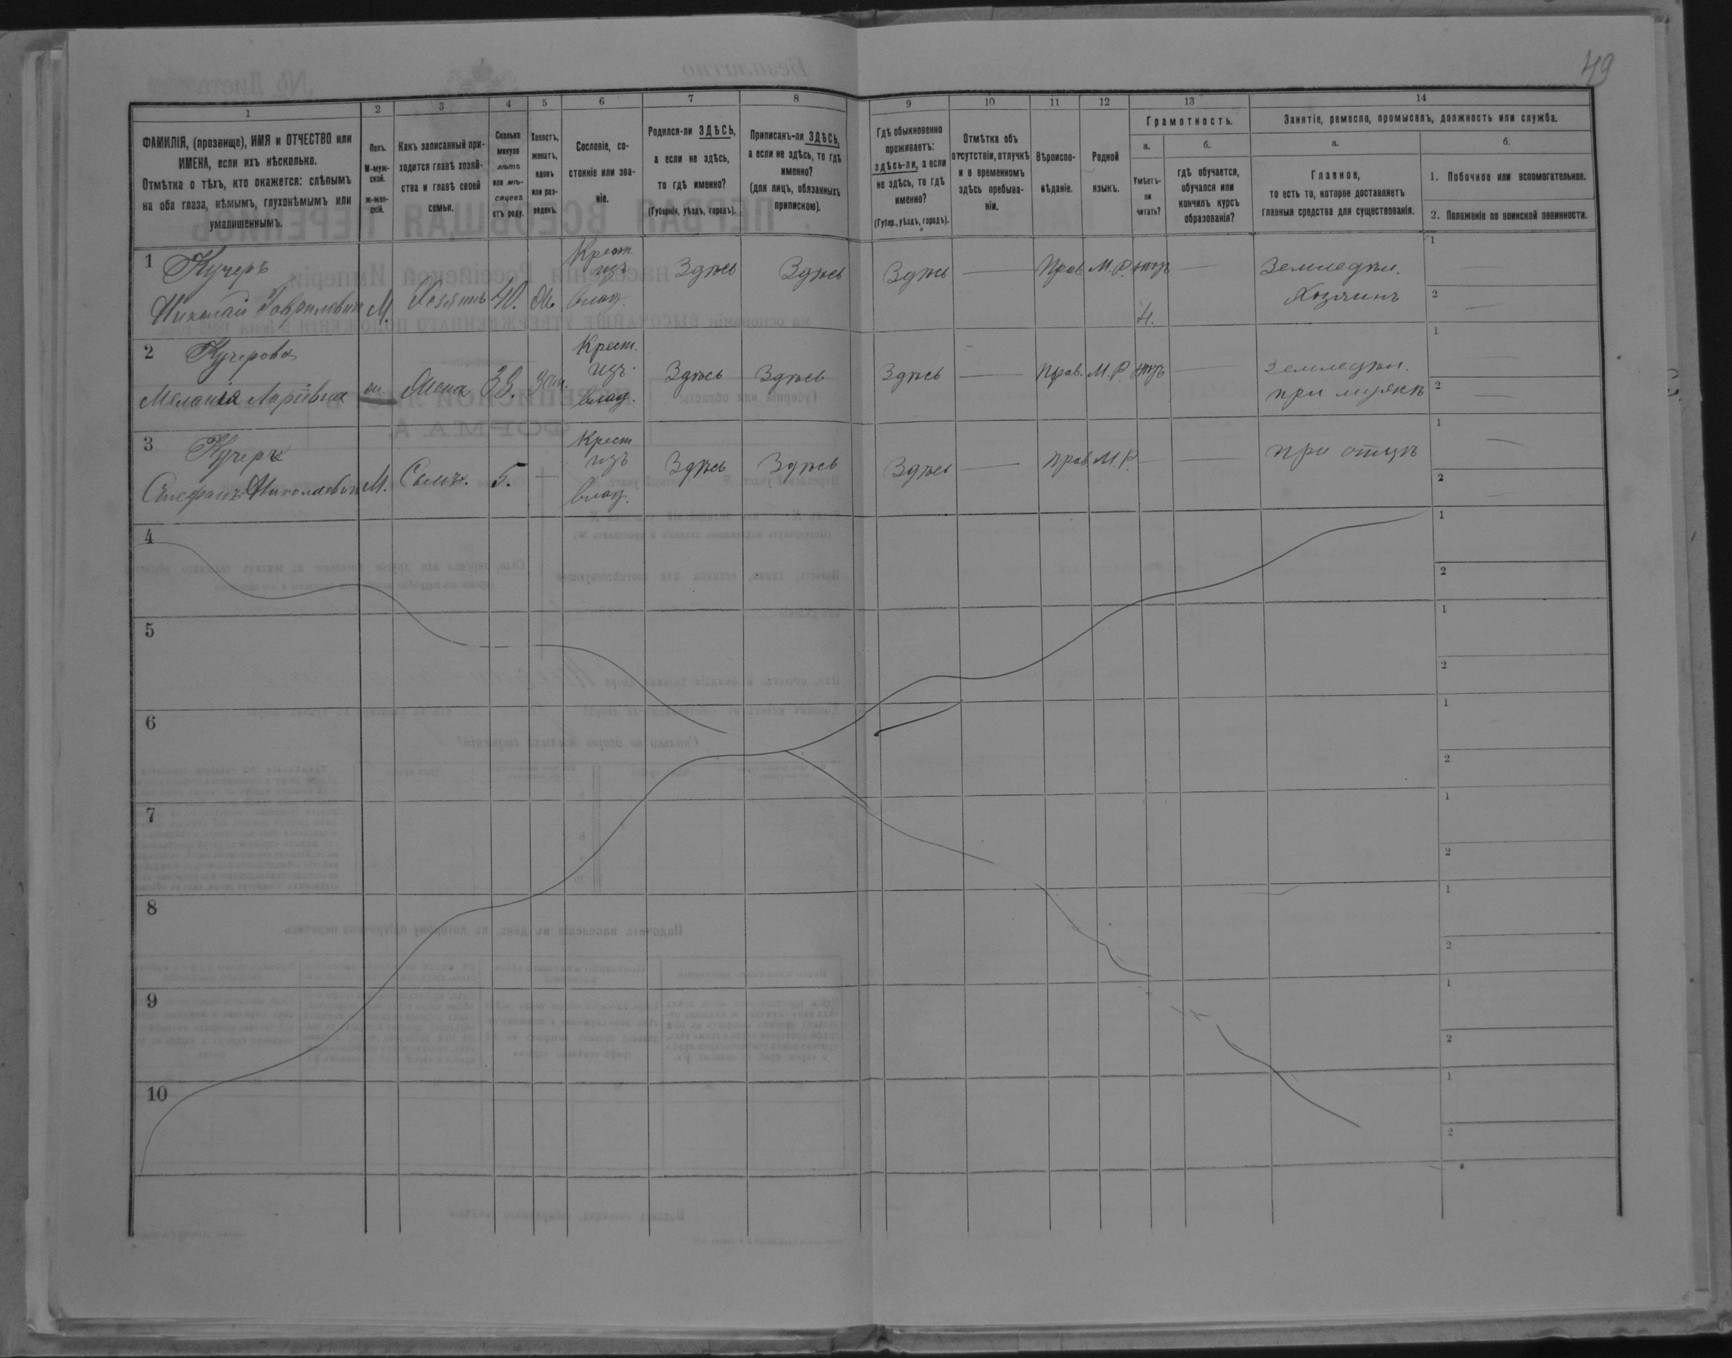 49
1 2 3 4 5 6 7 8 9 10 11 12 13 14
ФАМИЛІЯ, (прозвище), ИМЯ и ОТЧЕСТВО или
ИМЕНА, если ихъ нѣсколько.
Отмѣтка о тѣхъ, кто окажется: слѣпымъ
на оба глаза, нѣмымъ, глухонѣмымъ или
умалишеннымъ.
Полъ.
М-муж-
ской.
ж-жен-
скій.
Какъ записанный при-
ходится главѣ хозяй-
ства и главѣ своей
семьи.
Сколько
минуло
лѣтъ
или мѣ-
сяцевъ
отъ роду.
Холостъ,
женатъ,
вдовъ
или раз-
веденъ.
Сословіе, со-
стояніе или зва-
ніе.
Родился-ли ЗДѢСЬ,
а если не здѣсь,
то гдѣ именно?
(Губернія, уѣздъ, городъ).
Приписанъ-ли ЗДѢСЬ,
а если не здѣсь, то гдѣ
именно?
(для лицъ, обязанныхъ
припискою).
Гдѣ обыкновенно
проживаетъ:
здѣсь-ли, а если
не здѣсь, то гдѣ
именно?
(Губер., уѣздъ, городъ).
Отмѣтка объ
отсутствіи, отлучкѣ
и о временномъ
здѣсь пребыва-
ніи.
Вѣроиспо-
вѣданіе.
Родной
языкъ.
Грамотность.
а.
Умѣетъ-
ли
читать?
б.
гдѣ обучается,
обучался или
кончилъ курсъ
образованія?
Занятіе, ремесло, промыселъ, должность или служба.
а.
Главное,
то есть то, которое доставляетъ
главныя средства для существованія.
б.
1. Побочное или вспомогательное.
2. Положеніе по воинской повинности.
1 Кучеръ
Николай Гаврилович М. Хозяинъ 40. Ж. Крест. изъ влад. Здѣсь Здѣсь Здѣсь — Прав. М.Р. нѣтъ — Земледѣл. Хозяинъ 1 —
2 —
2 Кучерова
Меланія Ларіевна ж. Жена 38. зам. Крест. изъ влад. Здѣсь Здѣсь Здѣсь — Прав. М.Р. нѣтъ — Земледѣл. при мужѣ 1 —
2 —
3 Кучеръ
Стефанъ Николаевич М. Сынъ. 5. — Крест изъ влад. Здѣсь Здѣсь Здѣсь — Прав. М.Р. — — при отцѣ 1 —
2 —
4 1
2
5 1
2
6 1
2
7 1
2
8 1
2
9 1
2
10 1
2